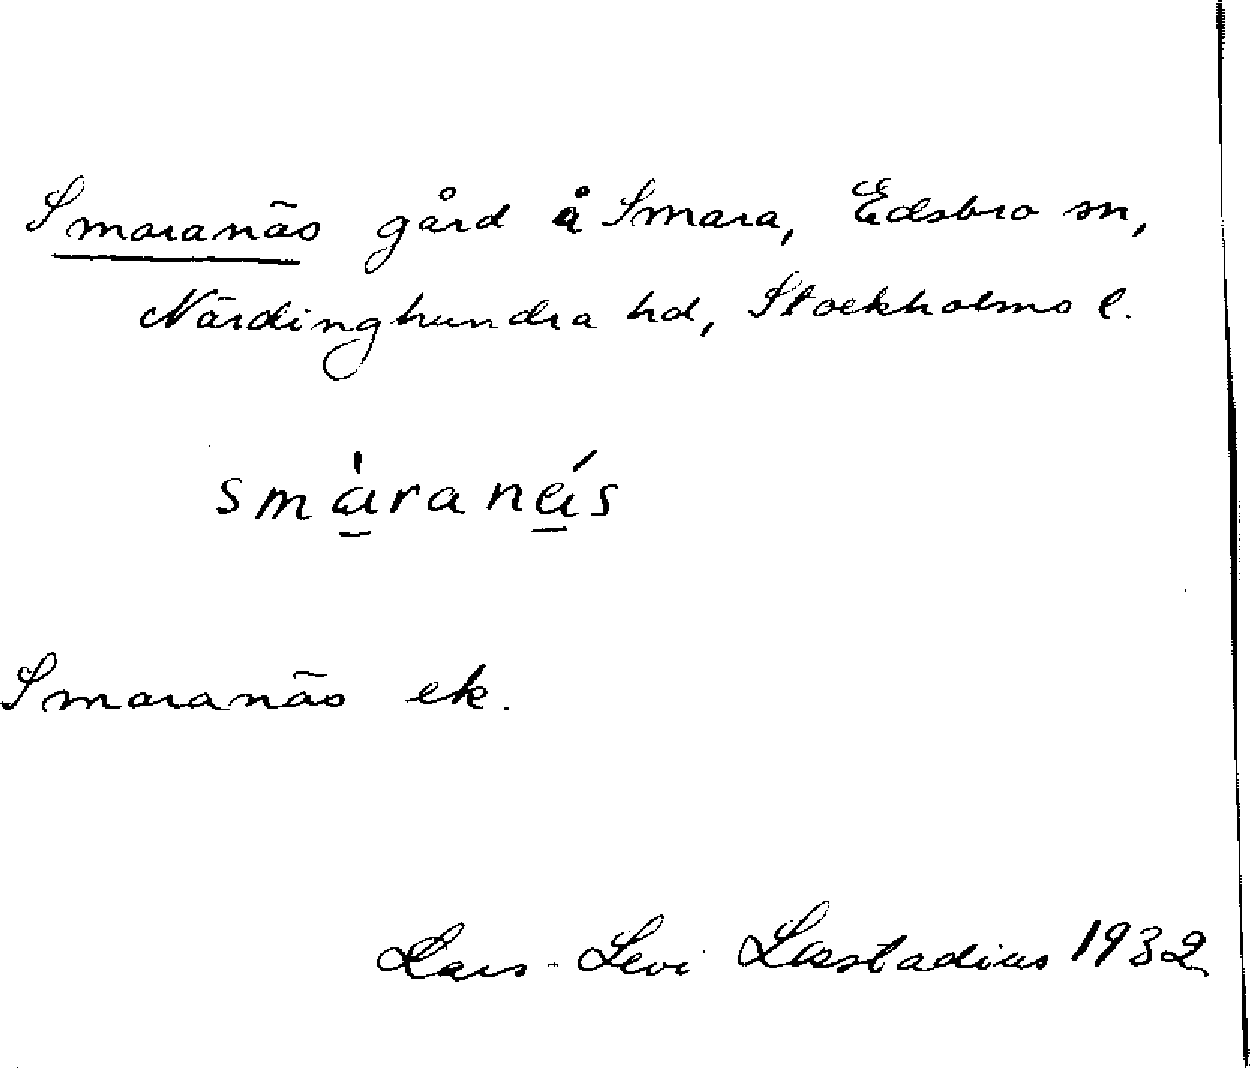 Smaranäs gård å Smara, Edsbro sn,
Närdinghundra hd, Stockholms l.
smàranä́s
Smaranäs ek.
Lars-Levi Læstadius 1932